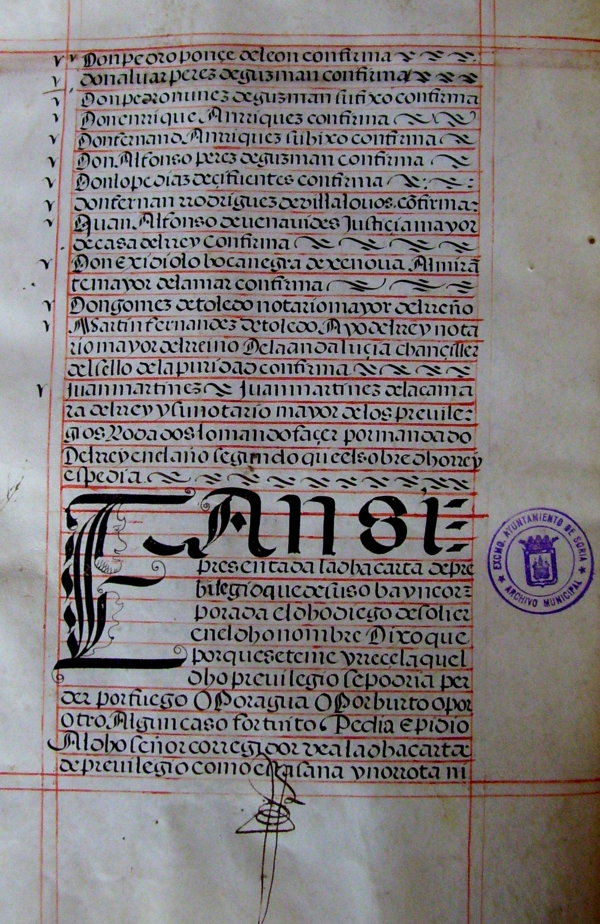 Don pedro ponçe de leon confirma
don aluar perez de guzman confirma
Don pedro nunez de guzman su fixo confirma
Don enrrique Anrriquez confirma
Don fernand Anrriquez su bixo confirma
Don Alfonso perez de guzman confirma
Don lope diaz de çifuentes confirma
don fernan rrodriguez de villalouos. cõfirma:
Quan Alfonso de uenauides Justiçia mayor
de casa del rrey Confirma
Don Exidiolo bocanegra de xenoua Almirã
te mayor de la mar confirma
Don gomez de toledo notario mayor del rreño
Martin fernandez de toledo. Ayo del rrey nota
rio mayor del rreino De la andaluçia chançiller
del sello de la puridad confirma
Juan martinez Juan martinez de la cama
ra del rrey y su notario mayor de los preuile:
gios Rodados lo mando façer por mandado
Del rrey en el año segundo que el sobre dho rrey
espedia
E ANSI
presentada la dha carta de pre
bilegio que de suso ba yncor:
porada el dho diego de solier
en el dho nombre Dixo que
porque se teme y rreçela que el
dho preuilegio se podria per
der por fuego O Por agua O Por hurto o por
otro. Algun caso fortuito Pedia E pidio
Al dho señor corregidor vea la dha carta
de preuilegio como esta sana y no rrota ni
EXCMO. AYUNTAMIENTO DE SORIA
ARCHIVO MUNICIPAL